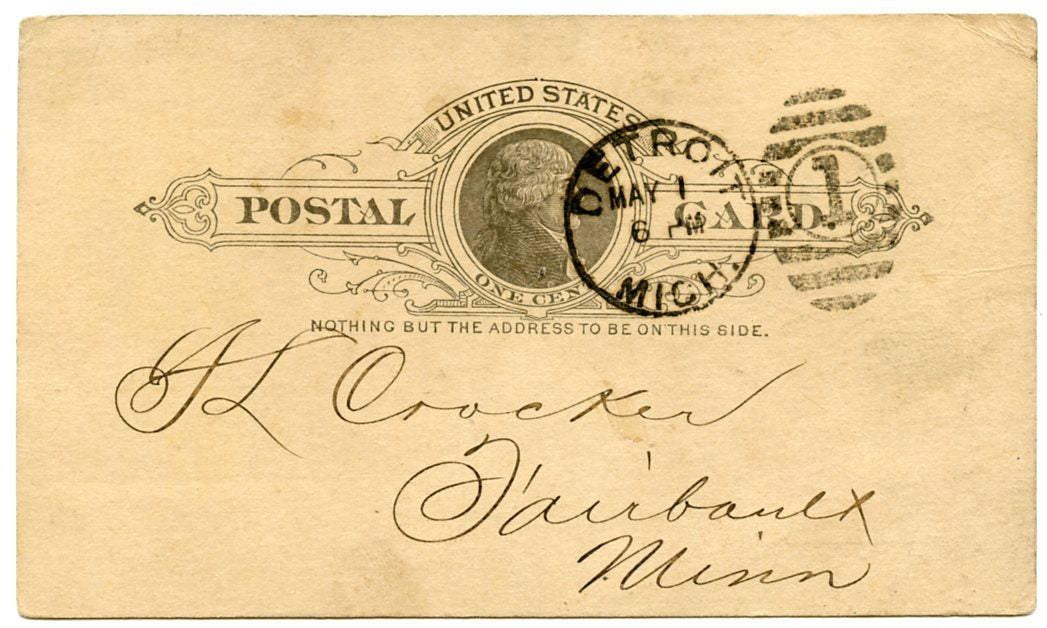 UNITED STATES
POSTAL CARD
ONE CENT
DETROIT
MAY 1
6 PM
MICH.
1
NOTHING BUT THE ADDRESS TO BE ON THIS SIDE.
A L Crocker
Fairbault
Minn